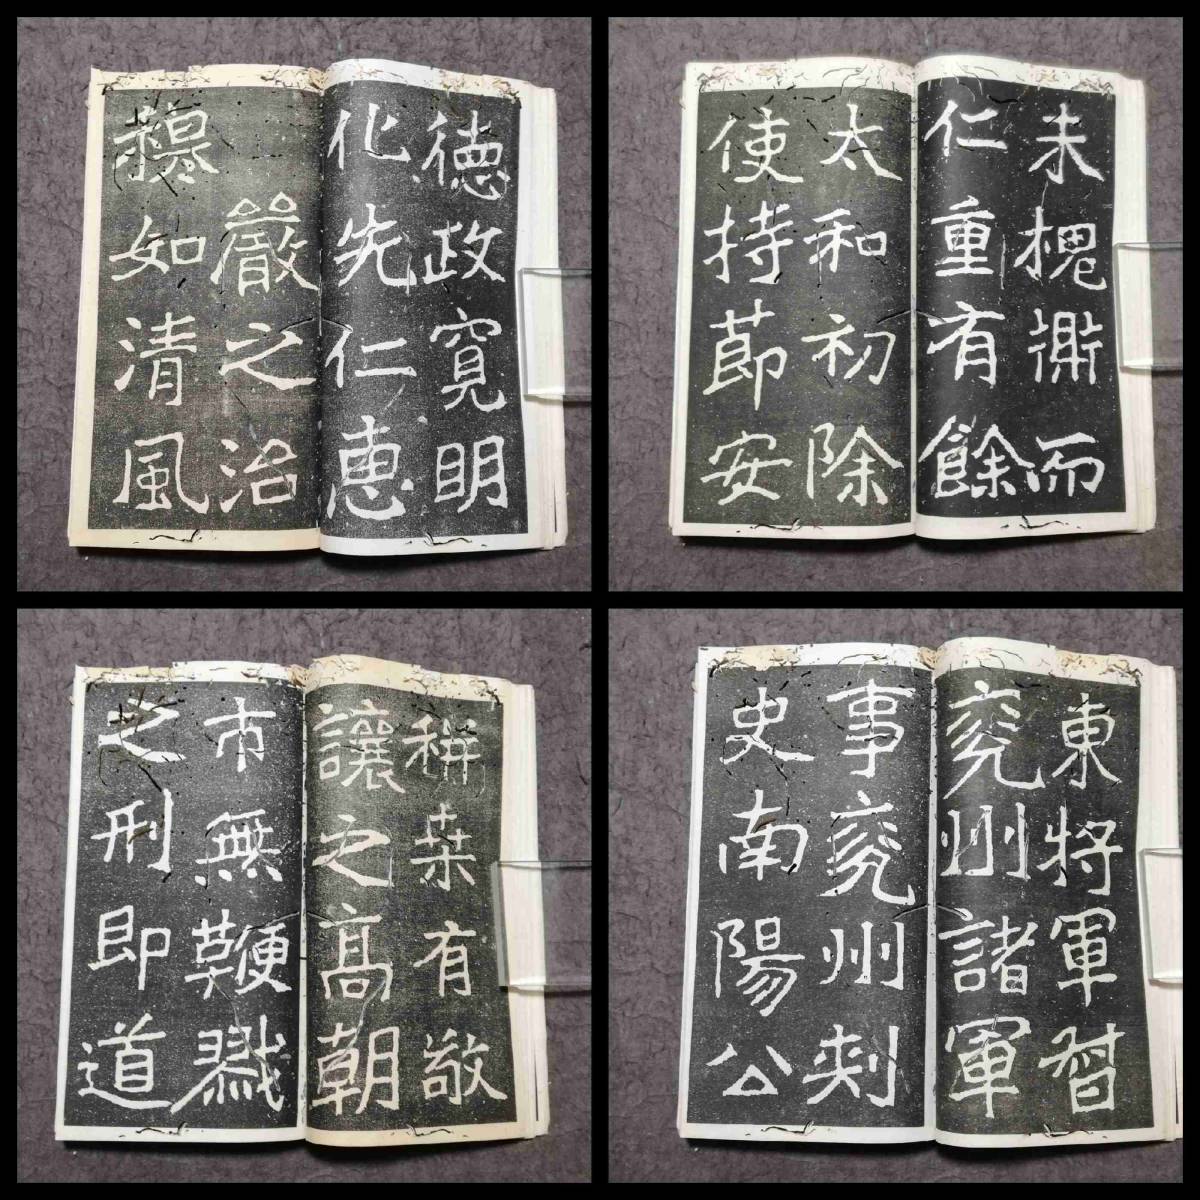 德政寬明
化先仁恵
嚴之治
穆如清風
未槐衛而
仁重有餘
太和初除
使持節安
耕桑有敬
讓之高朝
市無鞭戮
之刑即道
東將軍督
兗州諸軍
事兗州刺
史南陽公